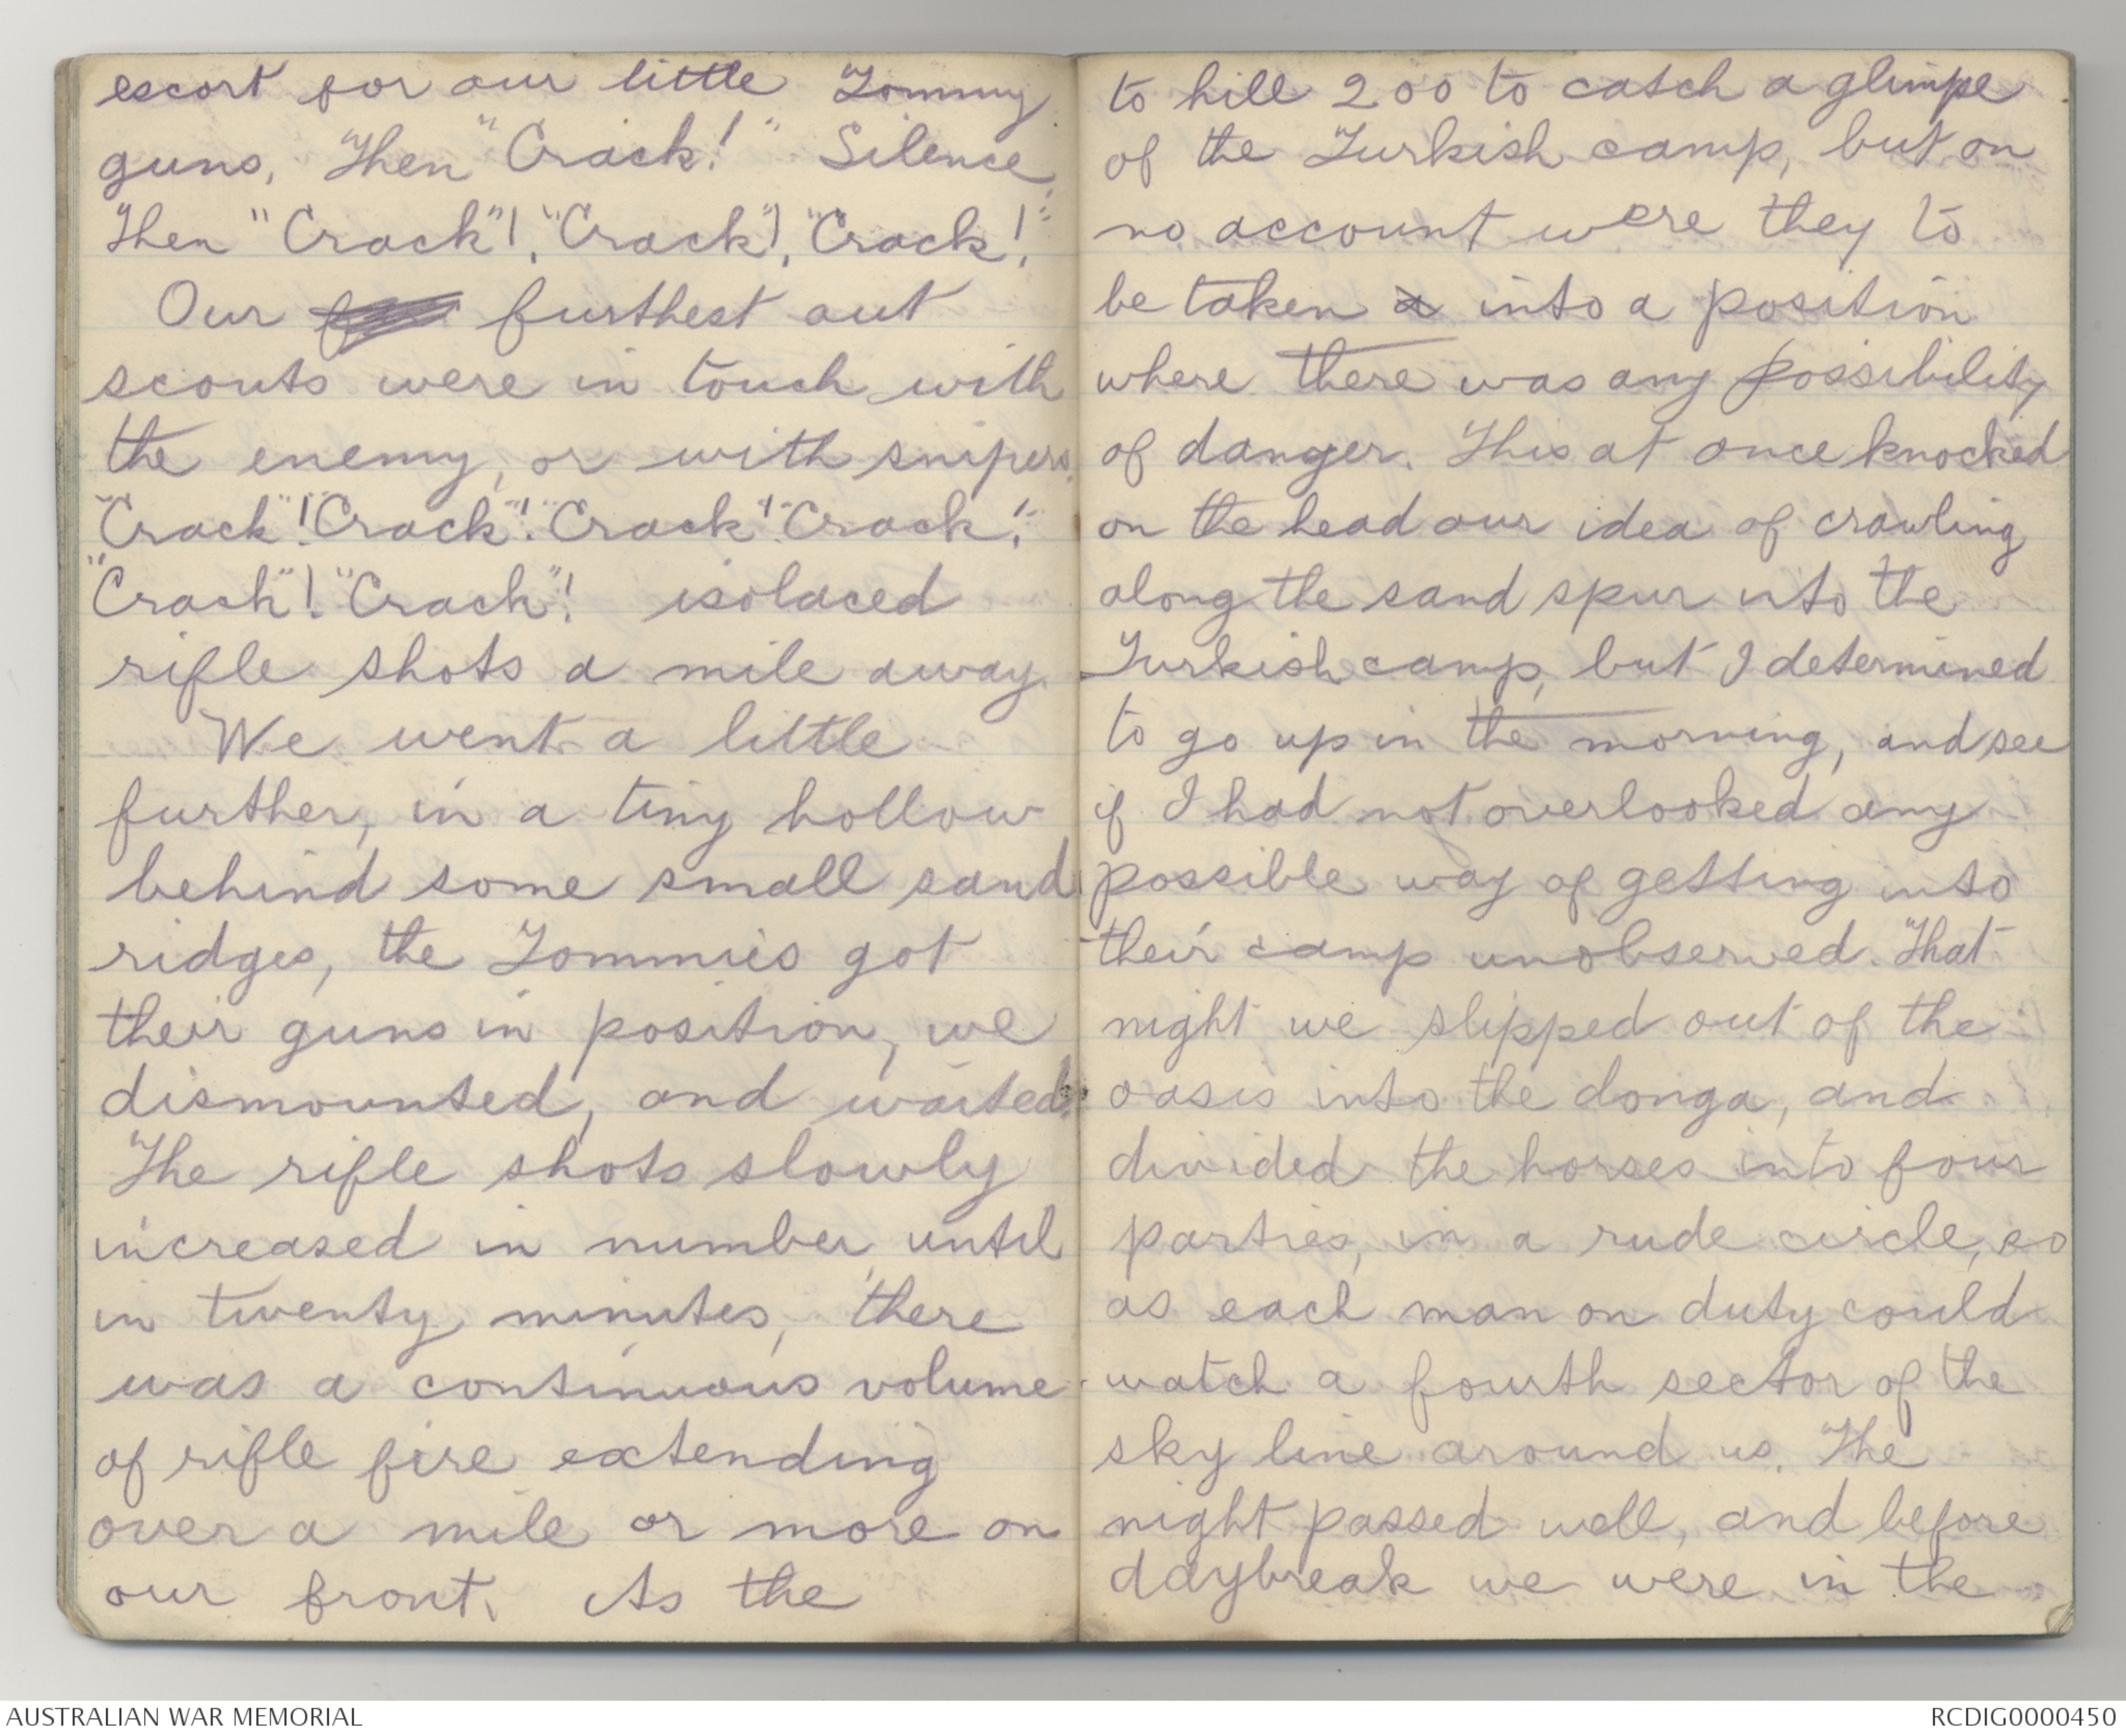 escort for our little Tommy
guns, Then "Crack!" Silence
Then "Crack"!, "Crack"!, "Crack!"
Our furthest out
scouts were in touch with
the enemy, or with snipers.
"Crack"! "Crack"! "Crack"! "Crack!"
"Crack"! "Crack"! isolaced
rifle shots a mile away.
We went a little
further, in a tiny hollow
behind some small sand
ridges, the Tommies got
their guns in position, we
dismounted, and waited.
The rifle shots slowly
increased in number, until
in twenty minutes, there
was a continuous volume
of rifle fire extending
over a mile or more on
our front. As the
to hill 200 to catch a glimpse
of the Turkish camp, but on
no account were they to
be taken into a position
where there was any possibility
of danger. This at once knocked
on the head our idea of crawling
along the sand spur into the
Turkish camp, but I determined
to go up in the morning, and see
if I had not overlooked any
possible way of getting into
their camp unobserved. That
night we slipped out of the
oasis into the donga, and
divided the horses into four
parties, in a rude circle, so
as each man on duty could
watch a fourth sector of the
sky line around us. The
night passed well, and before
daybreak we were in the
AUSTRALIAN WAR MEMORIAL
RCDIG0000450